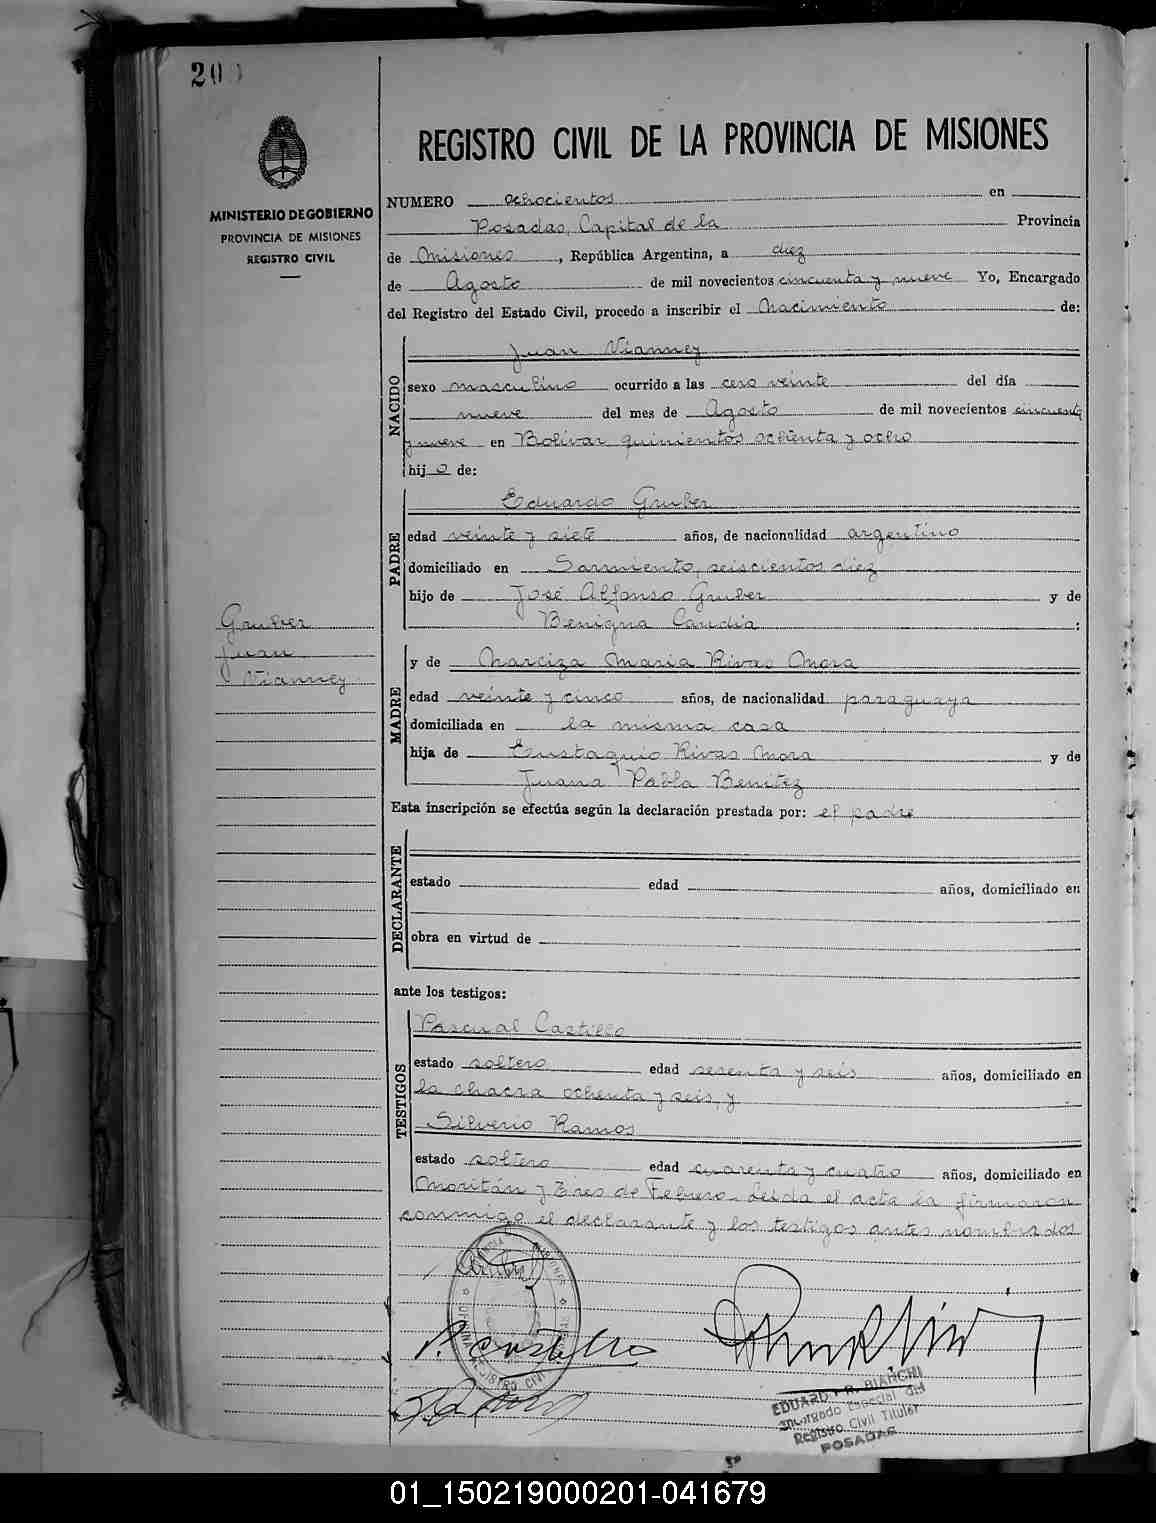 20
REGISTRO CIVIL DE LA PROVINCIA DE MISIONES
MINISTERIO DE GOBIERNO
PROVINCIA DE MISIONES
REGISTRO CIVIL
NUMERO ochocientos en
Posadas, Capital de la Provincia
de Misiones, República Argentina, a diez
de Agosto de mil novecientos cincuenta y nueve Yo, Encargado
del Registro del Estado Civil, procedo a inscribir el Nacimiento de:
NACIDO
Juan Vianney
sexo masculino ocurrido a las cero veinte del día
nueve del mes de Agosto de mil novecientos cincuenta
y nueve en Bolivar quinientos ochenta y ocho
hijo de:
PADRE
Eduardo Gruber
edad veinte y siete años, de nacionalidad argentino
domiciliado en Sarmiento, seiscientos diez
hijo de José Alfonso Gruber y de
Benigna Candia :
Gruber
Juan
Vianney
MADRE
y de Narciza Maria Rivas Mora
edad veinte y cinco años, de nacionalidad paraguaya
domiciliada en la misma casa
hija de Eustaquio Rivas Mora y de
Juana Pabla Benitez
Esta inscripción se efectúa según la declaración prestada por: el padre
DECLARANTE
estado edad años, domiciliado en
obra en virtud de
ante los testigos:
TESTIGOS
Pascual Castillo
estado soltero edad sesenta y seis años, domiciliado en
la chacra ochenta y seis, y
Silverio Ramos
estado soltero edad cuarenta y cuatro años, domiciliado en
Moritán y Tres de Febrero. Leida el acta la firmaron
conmigo el declarante y los testigos antes nombrados
P. Castillo
EDUARDO R. BIANCHI
Encargado Especial del
Registro Civil Titular
POSADAS
01_150219000201-041679